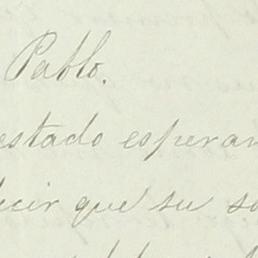 Pablo.
estado esperan
decir que su so